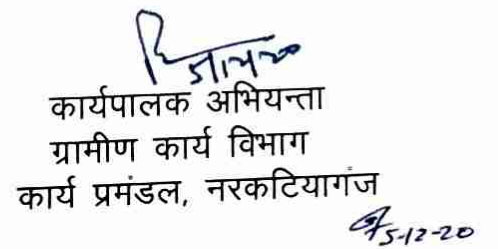 कार्यपालक अभियन्ता
ग्रामीण कार्य विभाग
कार्य प्रमंडल, नरकटियागंज
5-12-20